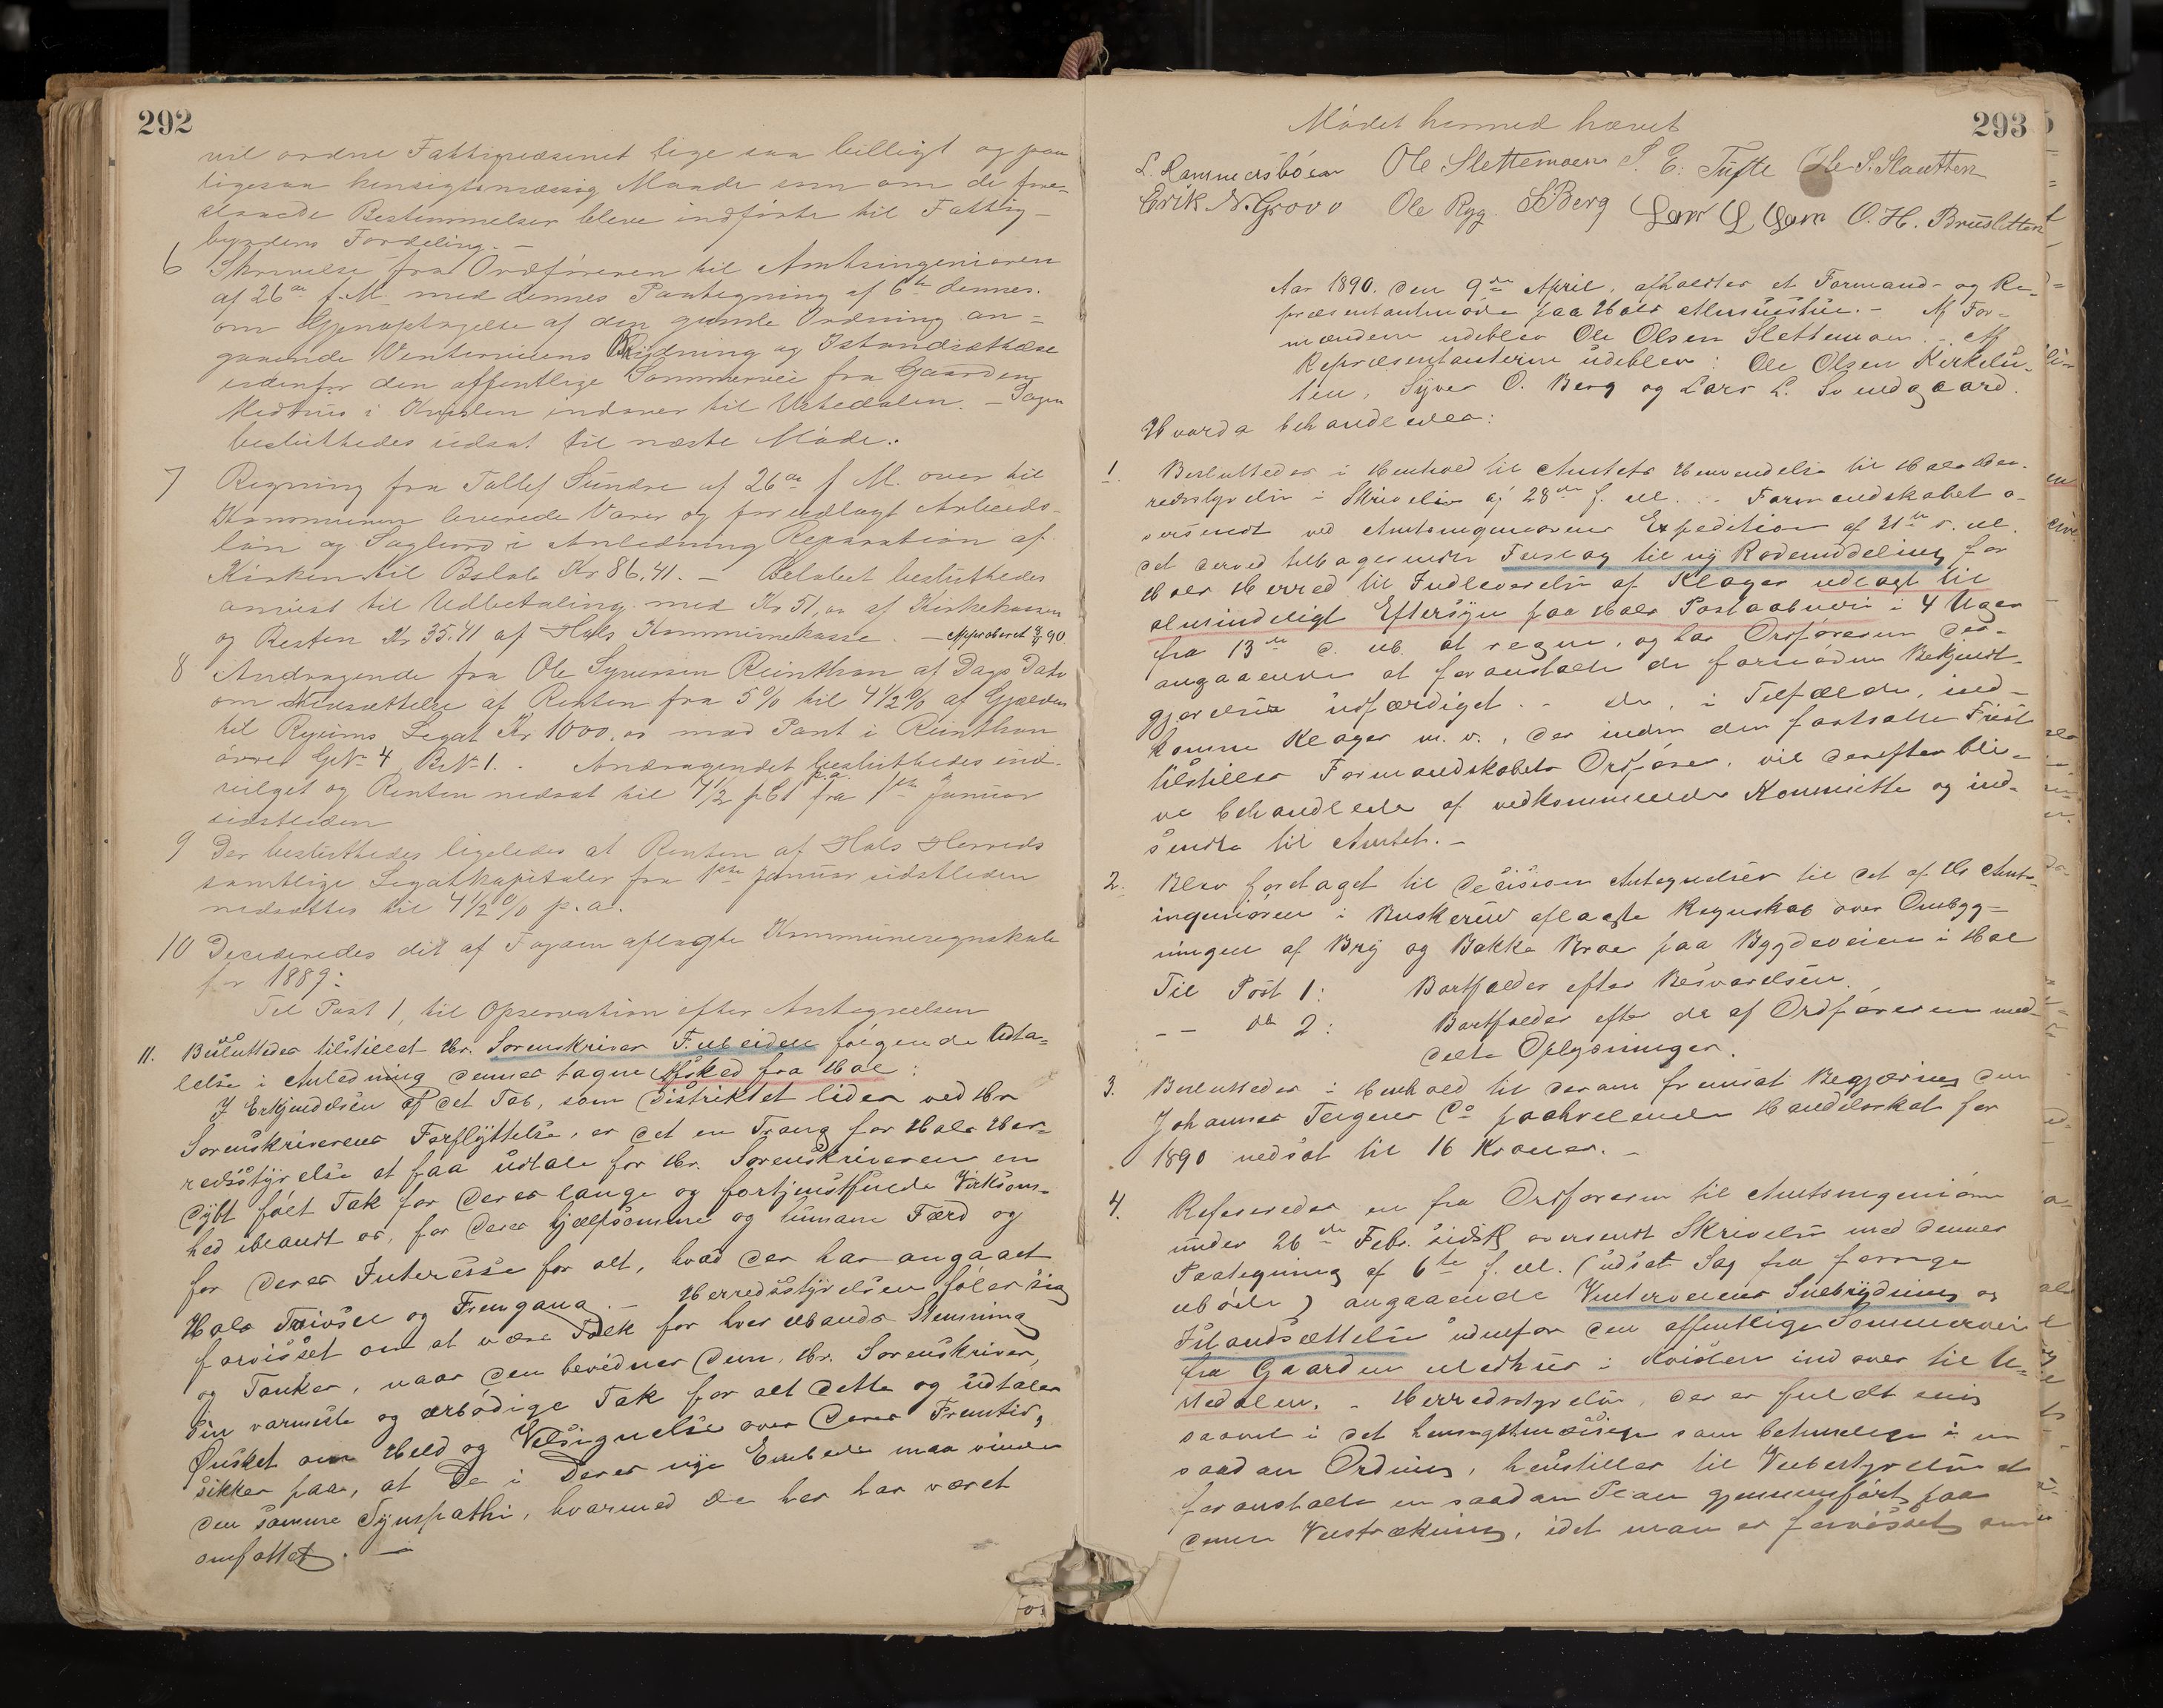 292
vil ordne Fattigvæsenet lige saa billigt og paa
ligesaa hensigtsmæssig Maade som om de fore-
slaaede Bestemmelser bleve indførte til Fattig-
byrdens Fordeling. –
6 Skrivelse fra Ordføreren til Amtsingeniøren
af 26de f. M. med dennes Paategning af 6te dennes.
om Gjenoptagelse af den gamle Ordning an=
gaaende Vinterveiens Brydning og Istandsættelse
udenfor den offentlige Sommervei fra Gaarden
Medhus i indover til Ustedalen. – Sagen
besluttedes udsat til næste Møde.
7 Regning fra Tollef Sundre af 26de f. M. over til
Kommunen leverede Varer og for udlagt Arbeids-
løn og i Anledning Reparation af
Kirken til Beløb Kr 86,41. – Beløbet besluttedes
anvist til Udbetaling med Kr 51,00 af Kirkekassen
og Resten Kr 35.41 af Hols Kommunekasse. –
8 Andragende fra Ole Syversen Reinthon af Dags Dato
om Nedsættelse af Renten fra 5 % til 4 1/2 % af Gjælden
til Legat Kr 1000,00 mod Pant i Reinthon
øvre GNo 4, BrNo 1. – Andragendet besluttedes ind-
vilget og Renten nedsat til 4 1/2 pCt p.a. fra 1ste Januar
sidstleden
9 Der besluttedes ligeledes at Renten af Hols Herreds
samtlige Legatkapitaler fra 1ste Januar sidstleden
nedsættes til 4 1/2 % p.a.
10 Decideredes det af Fogden aflagte Kommuneregnskab
for 1889:
Til Post 1, til Opservation efter Antegnelsen
11. Besluttedes tilstillet Hr. Sorenskriver følgende Udta=
lelse i Anledning dennes tagne Afsked fra Hol:
I Erkjendelsen af det Tab, som Distriktet lider ved Hr
Sorenskriverens Forflyttelse, er det en Trang for Hols Her=
redsstyrelse at faa udtale for Hr. Sorenskriveren en
dybt følt Tak for Deres lange og fortjenstfulde Virksom-
hed iblandt os, for Deres hjælpsomme og humane Færd og
for Deres Interesse for alt, hvad der har angaaet
Hols Trivsel og Fremgang. – Herredsstyrelsen føler sig
forvisset om at være Tolk for hver Mands Stemning
og Tanker, naar den bevidner Dem, Hr. Sorenskriver,
sin varmeste og ærbødige Tak for alt dette og udtaler
Ønsket om Held og Velsignelse over Deres Fremtid,
sikker paa, at De i Deres nye Embede maa vinde
den samme Sympathi, hvormed De her har været
omfattet. –
293
Mødet hermed hævet
L. Hammersbøen Ole Slettemoen S. E. Tufte Ole S. Slaatten
Erik N. Grovo Ole Ryg S Berg O. H. Brusletten
Aar 1890. den 9de April, afholdtes et Formand- og Re-
præsentantmøde paa Hols Almuestue. – Af For-
mændene udeblev Ole Olsen Slettemoen. – Af
Repræsentanterne udeblev: Ole Olsen Kirkelu-
ten, Syver O. Berg og Lars L. Svendgaard.
Hvorda behandledes:
1. Besluttedes i Henhold til Amtets Henvendelse til Hols Her-
redsstyrelse i Skrivelse af 28de f. M. – Formandskabet o-
versendt ved Amtsingeniørens Expedition af 31te s. M.
det derved tilbagesendte Forslag til ny Rodeinddeling for
Hols Herred til Indleverelse af Klager udlagt til
almindeligt Eftersyn paa Hols Postaabneri i 4 Uger
fra 13de d. M. at regne, og har Ordføreren der-
angaaende at foranstalte de fornødne Bekjendt-
gjørelser udfærdiget. – de, i Tilfælde, ind-
komne Klager m. v., der inden den fastsatte Frist
tilstilles Formandskabets Ordfører, vil derefter bli-
ve behandlede af vedkommende Kommitte og ind-
sendte til Amtet. –
2. Blev foretaget til Decision Antegnelser til det af Hr Amts-
ingeniøren i Buskerud aflagte Regnskab over Ombyg-
ningen af Bry og Bakke Broe paa Bygdeveien i Hol
Til Post 1: Bortfalder efter Besvarelsen.
– – do 2: Bortfalder efter de af Ordføreren med-
delte Oplysninger.
3. Besluttedes i Henhold til derom fremsat Begjæring den
Johannes Co paahvilende Handelsskat for
1890 nedsat til 16 Kroner. –
4. Refereredes en fra Ordføreren til Amtsingeniøren
under 26de Febr. sidstl oversendt Skrivelse med dennes
Paategning af 6te f. M. (udsat Sag fra forrige
Møde) angaaende Vinterveiens Snebrydning og
Istandsættelse udenfor den offentlige Sommervei
fra Gaarden Medhus i indover til U-
stedalen. – Herredsstyrelsen, der er fuldt enig
saavel i det hensigtsmæssige som betimelige i en
saadan Ordning, henstiller til Veibestyrelsen at
foranstalte en saadan Plan gjennemført paa
denne Veistrækning, idet man er forvisset om